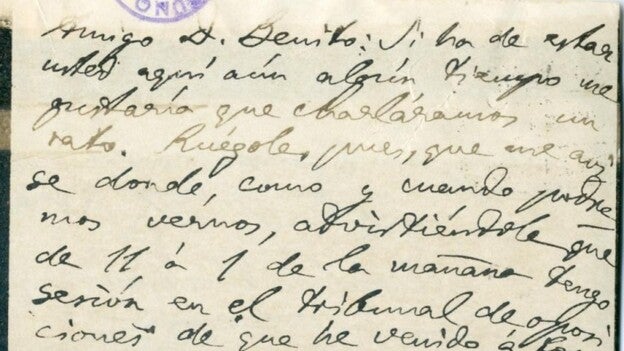 DNO
Amigo D. Benito: Si ha de estar
usted aquí aún algún tiempo me
gustaría que charláramos un
rato. Ruégole, pues, que me avi
se donde, como y cuando podre
mos vernos, advirtiéndole que
de 11 á 1 de la mañana tengo
sesión en el Tribunal de oposi
ciones de que he venido á